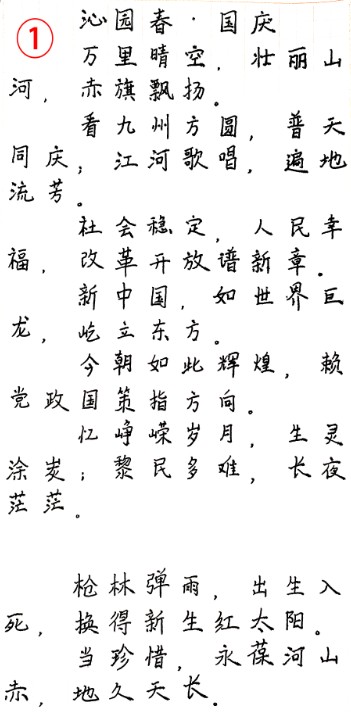 ① 沁园春·国庆
万里晴空，壮丽山
河，赤旗飘扬。
看九州方圆，普天
同庆；江河歌唱，遍地
流芳。
社会稳定，人民幸
福，改革开放谱新章。
新中国，如世界巨
龙，屹立东方。
今朝如此辉煌，赖
党政国策指方向。
忆峥嵘岁月，生灵
涂炭；黎民多难，长夜
茫茫。
枪林弹雨，出生入
死，换得新生红太阳。
当珍惜，永葆河山
赤，地久天长。